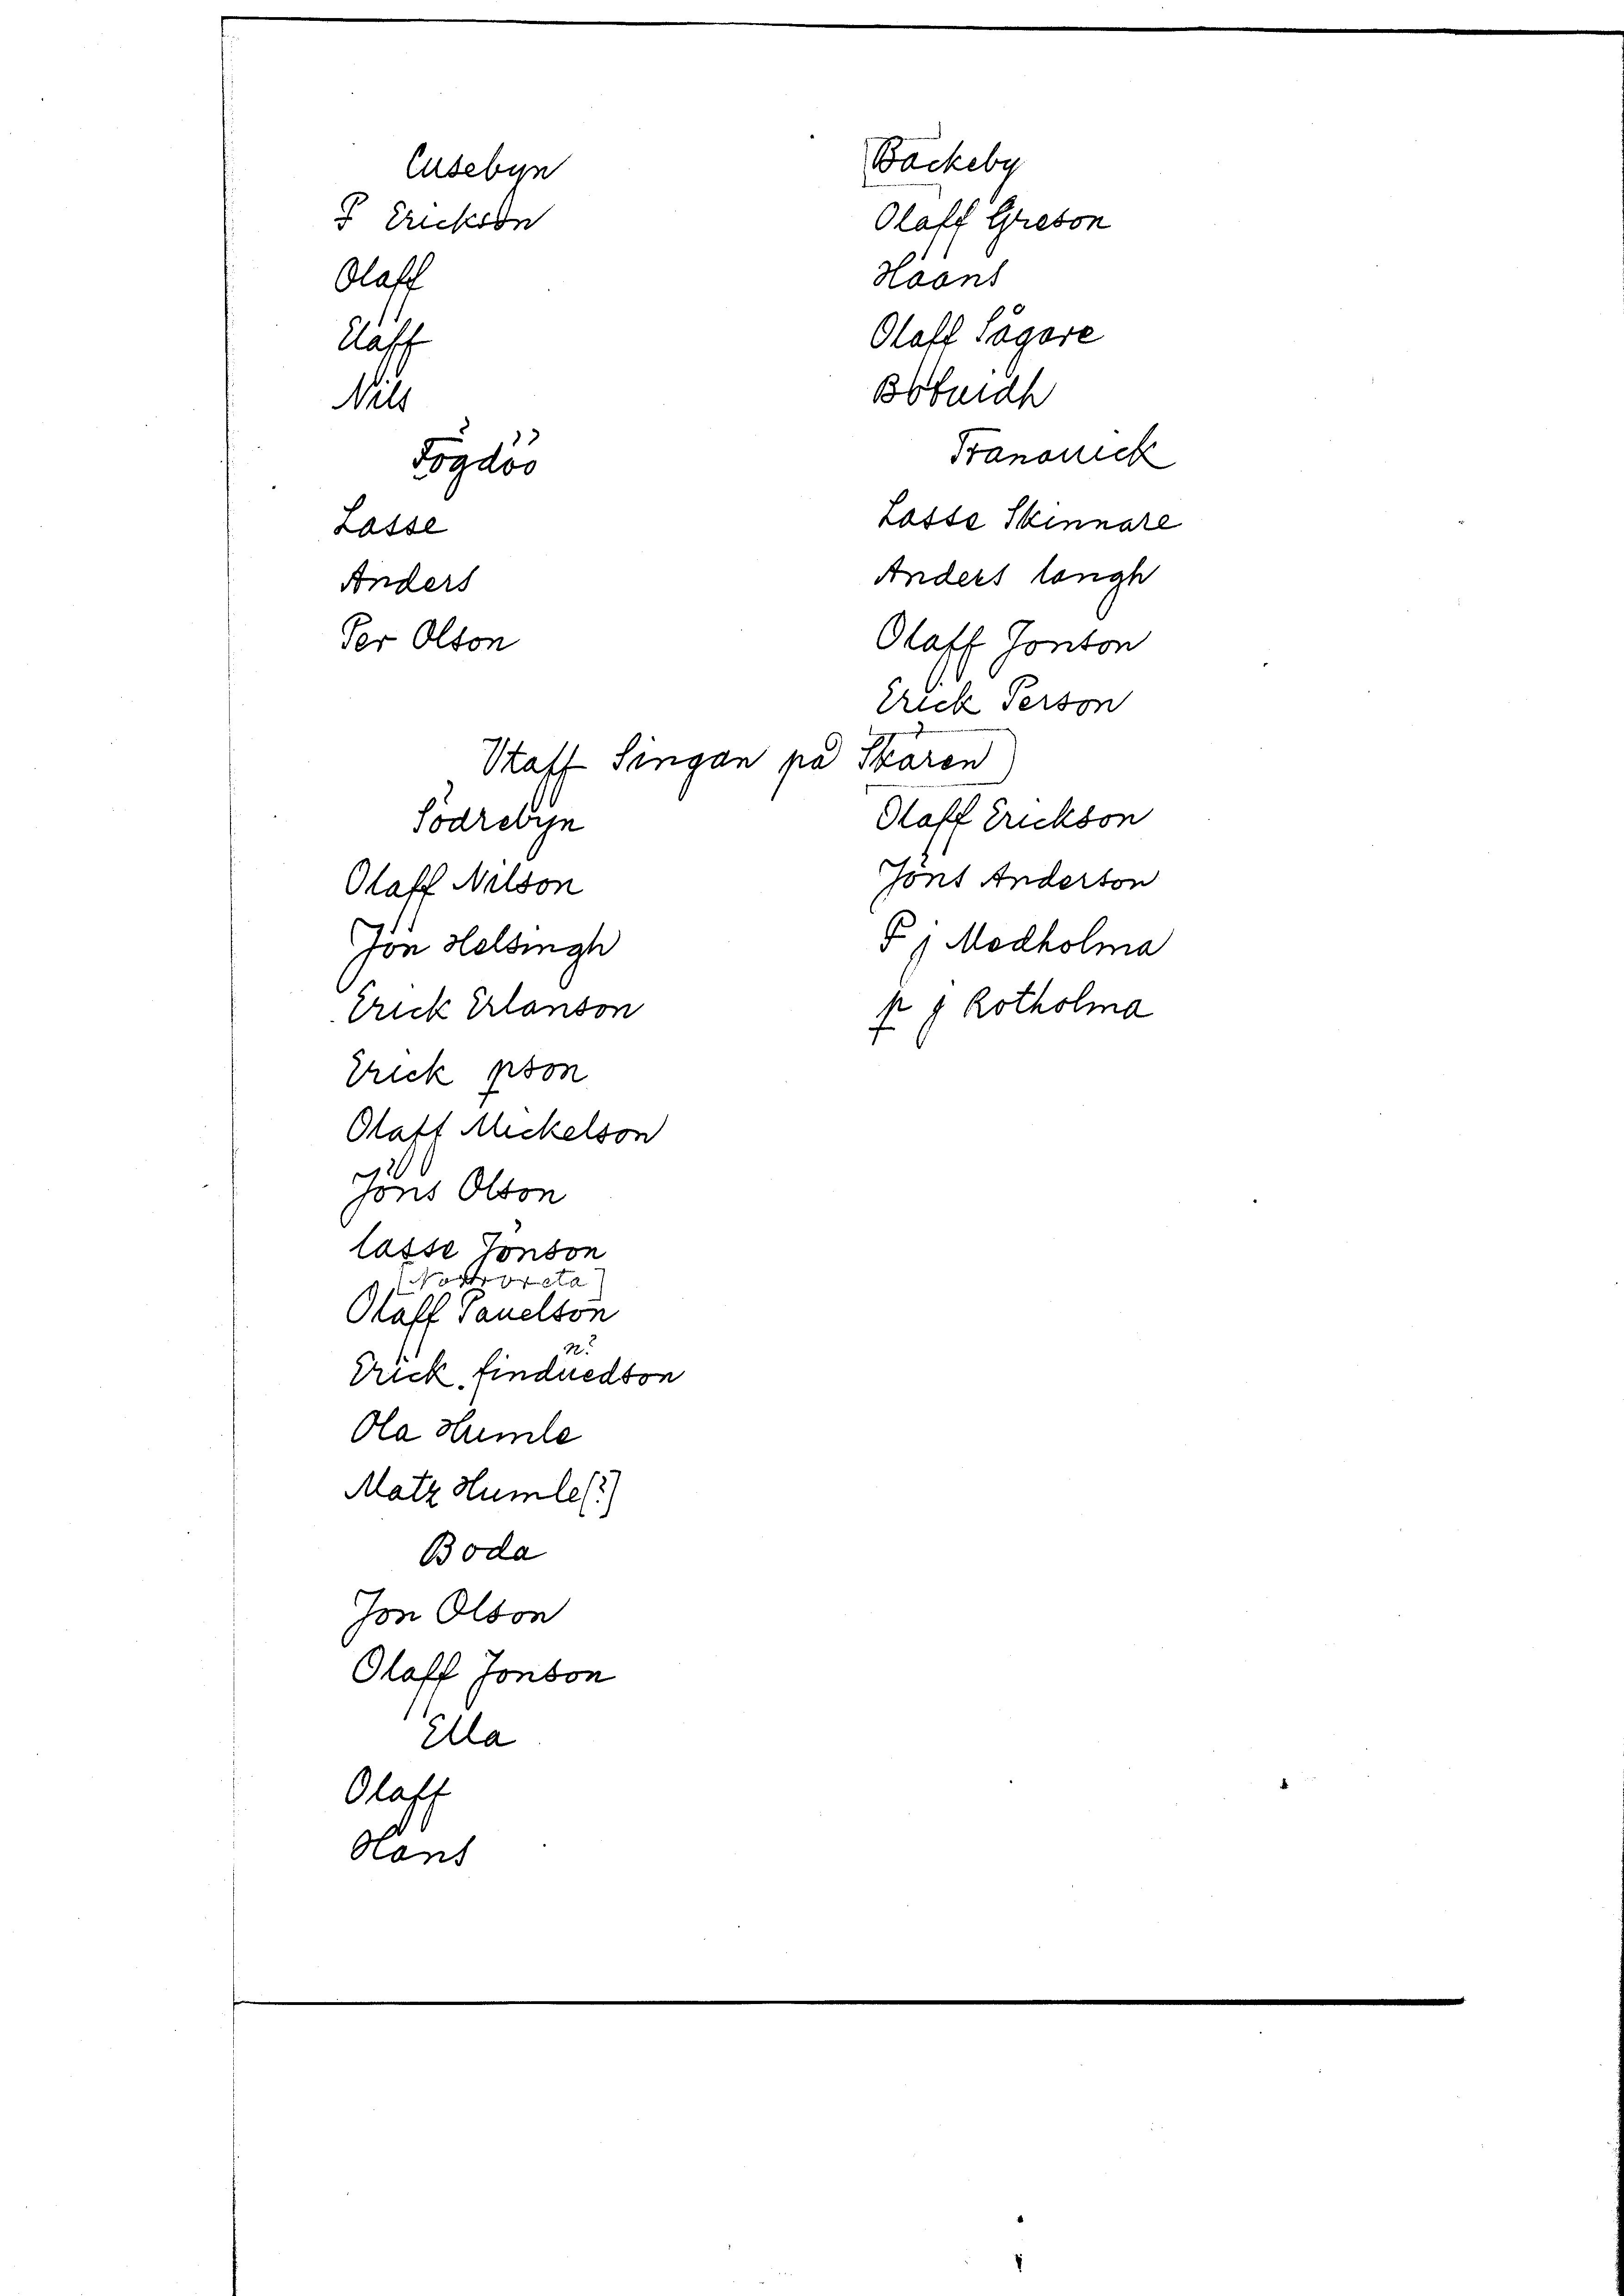 Cusebyn
P Erickson
Olaff
Elaff
Nils
Fögdöö
Lasse
Anders
Per Olson
Bäckeby
Olaff Greson
Håans
Olaff Sågare
Lasse Skinnare
Anders langh
Olaff Jonson
Erick Person
Staff Singan på Skären
Södrebyn
Olaff Nilson
Jön Helsingh
Erick Erlanson
Erick pson
Olaff Mickelson
Jöns Olson
lasse Jönson
Olaff Pauelson
n?
Erick finduedson
Ola Humle
Matz Humle(?)
Boda
Jon Olson
Olaff Jonson
Ella
Olaff
Hans
Olaff Erickson
Jöns Anderson
P j Medholma
p j Rotholma